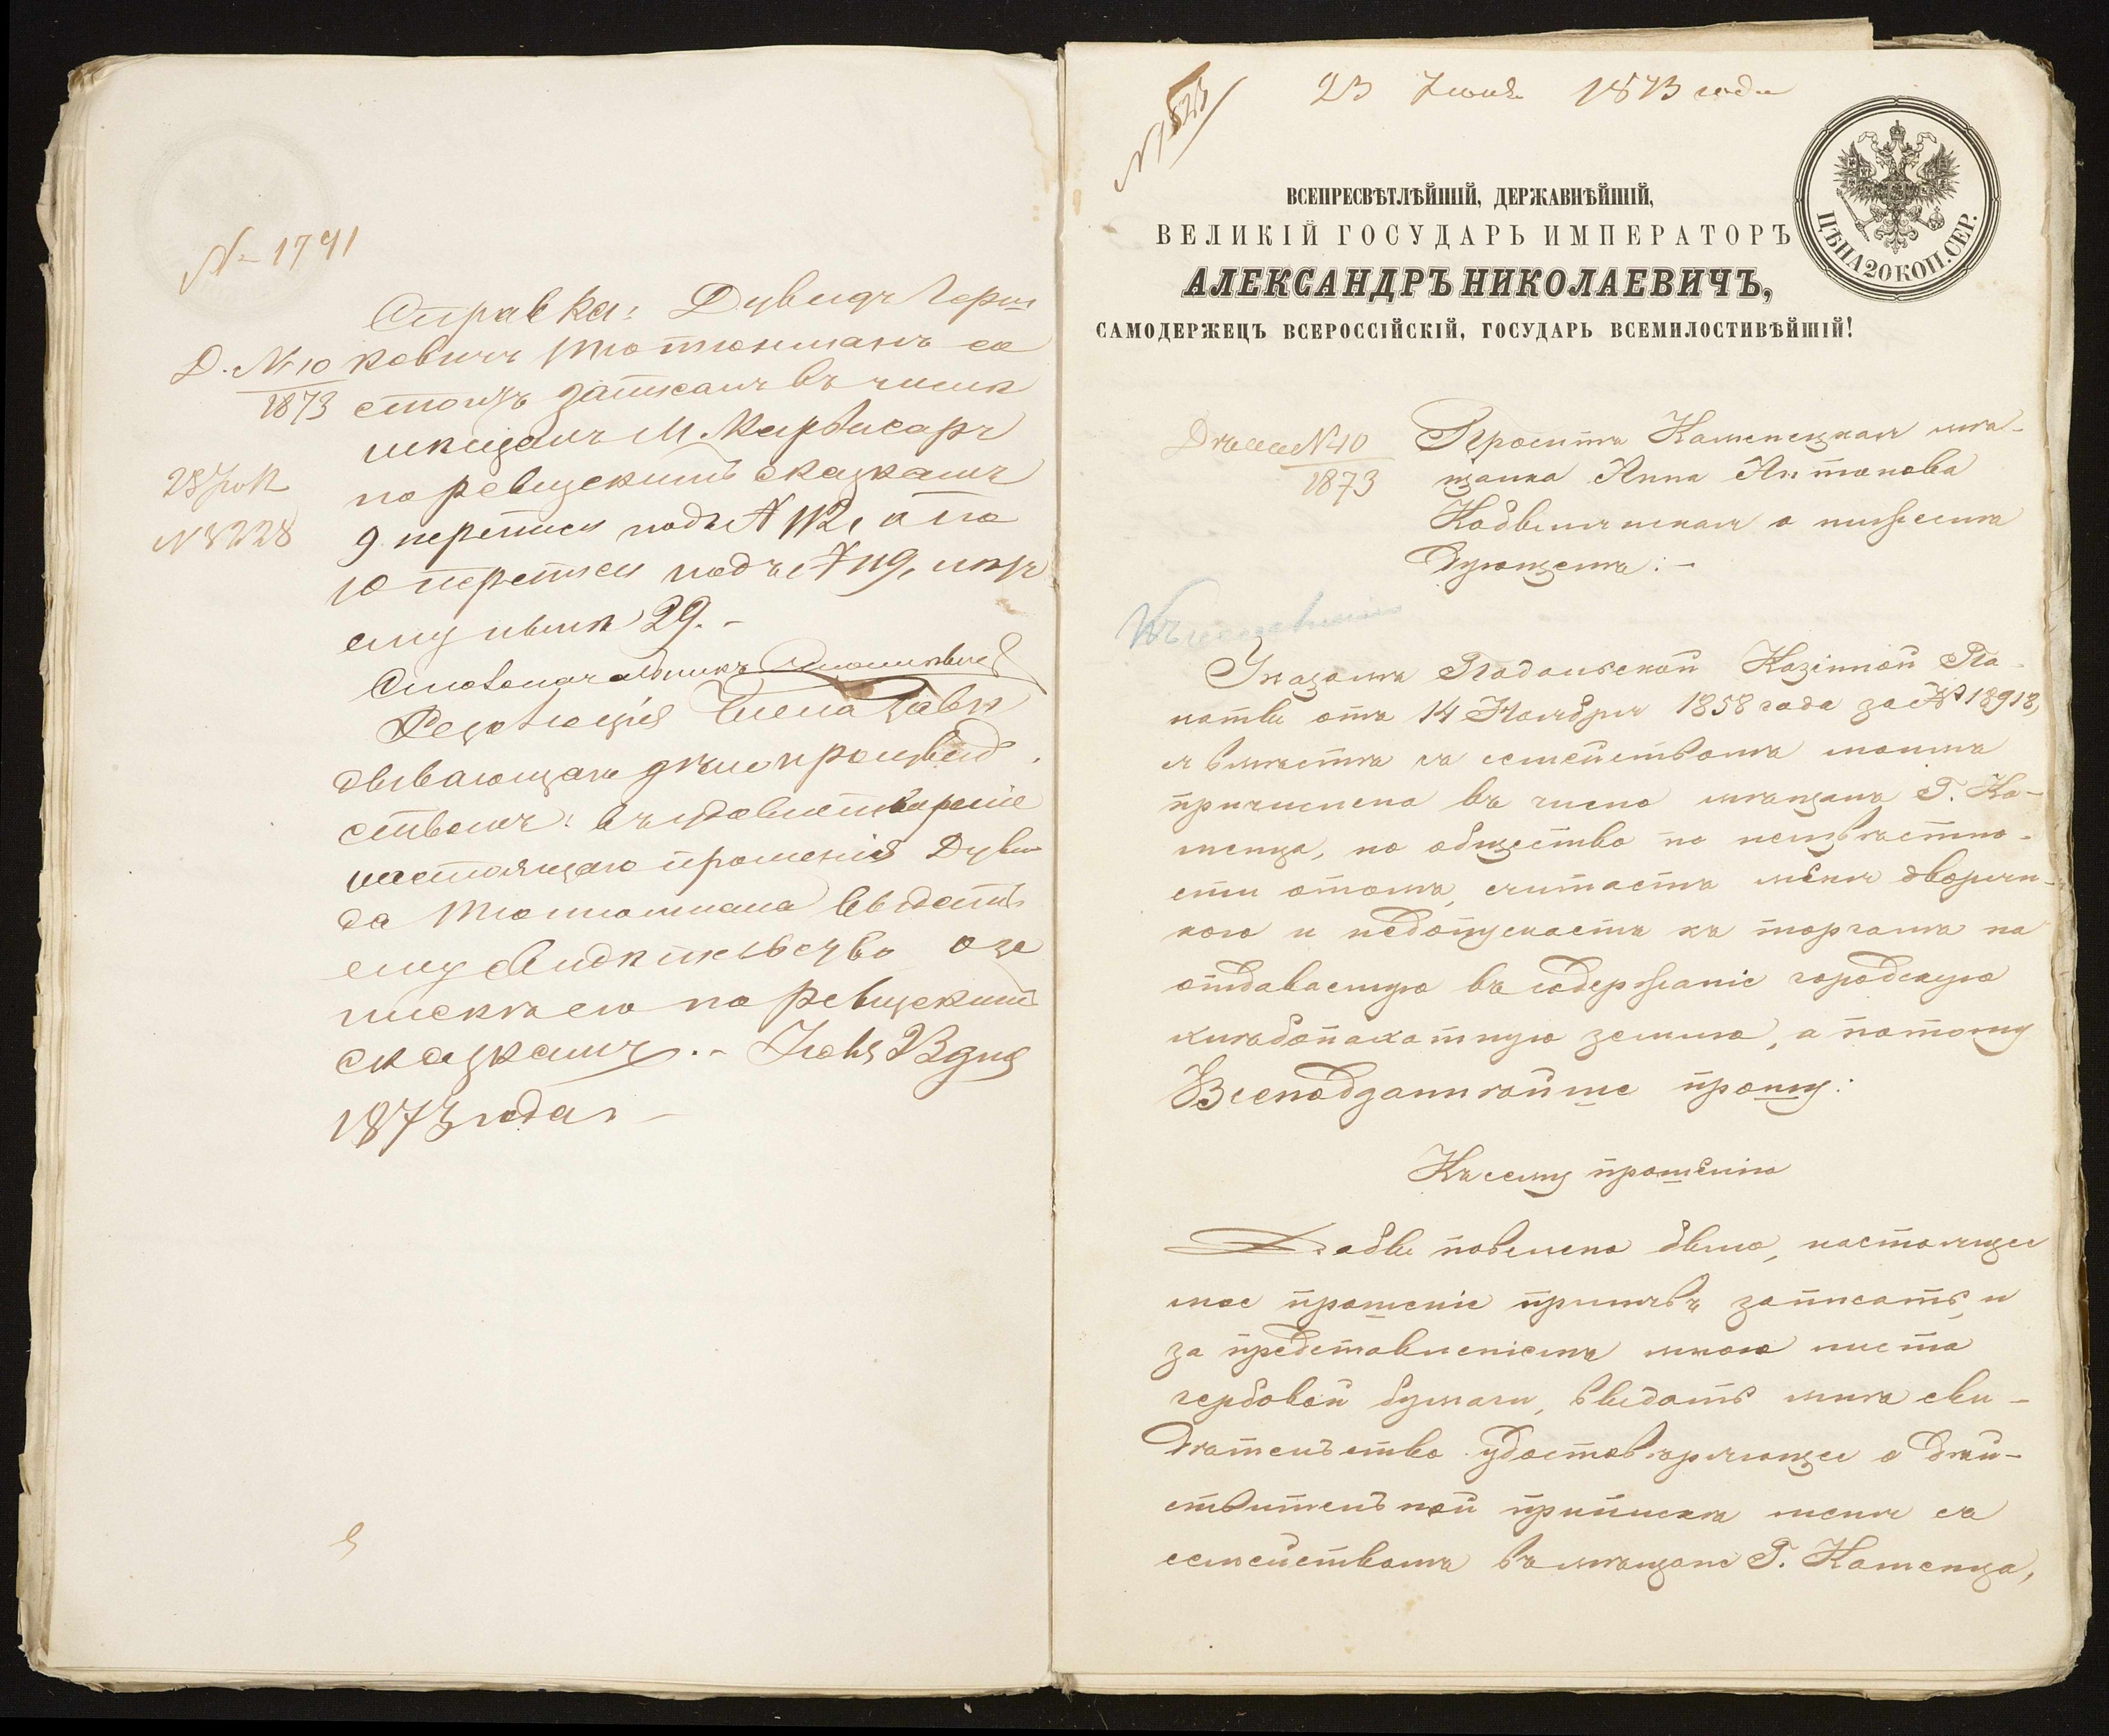 № 1741
Справка: Дувидъ Герш
Д. № 10 ковичъ Тютюнманъ со
1873 стоитъ записанъ въ числѣ
мѣщанъ М.
по ревизскимъ сказкамъ
28 Іюн
№ 8228
9 переписи подъ № 112, а по
10 переписи подъ № 119, лѣтъ
ему нынѣ 29.-
Столоначальникъ
Резолюція Члена Завѣ
дывающаго дѣлопроизвод
ствомъ: въ удовлетвореніе
настоящаго прошенія Дуви
да Тютюнмана выдать
ему свидѣтельство о за
пискѣ его по ревизскимъ
сказкамъ.- Іюня 23 дня
1873 года
23 Іюня 1873 года
ВСЕПРЕСВѢТЛѢЙШІЙ, ДЕРЖАВНѢЙШІЙ,
ВЕЛИКІЙ ГОСУДАРЬ ИМПЕРАТОРЪ
АЛЕКСАНДРЪ НИКОЛАЕВИЧЪ,
САМОДЕРЖЕЦЪ ВСЕРОССІЙСКІЙ, ГОСУДАРЬ ВСЕМИЛОСТИВѢЙШІЙ!
ЦѢНА 20 КОП. СЕР.
Дѣло № 10
1873
Проситъ Каменецкая мѣ-
щанка Анна Антонова
о нижеслѣ
дующемъ:-
Указомъ Подольской Казенной Па-
латы отъ 14 Ноября 1858 года за № 18918,
я вмѣстѣ съ семействомъ моимъ
причислена въ число мѣщанъ Г. Ка-
менца, но общество по неизвѣстно-
сти отомъ, считаетъ меня дворян-
кою и недопускаетъ къ торгамъ на
отдаваемую въ содержаніе городскую
хлѣбопахатную землю, а потому
Всеподданнѣйше прошу:
Къ сему прошенію
Дабы повелено было, настоящее
мое прошеніе принявъ записать, и
за представленіемъ мною листа
гербовой бумаги, выдать мнѣ сви-
дѣтельство удостовѣряющее о дѣй-
ствительной припискѣ меня съ
семействомъ въ мѣщане Г. Каменца,